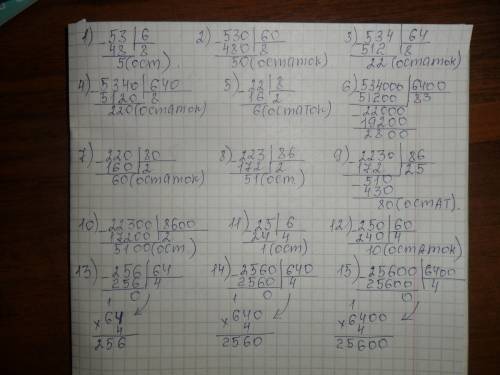 1) 53 | 6 2) 530 | 60 3) 534 | 64
48 | 8 480 | 8 512 | 8
5(ост). 50(остаток) 22(остаток)
4) 5340 | 640 5) 22 | 8 6) 534000 | 6400
5120 | 8 16 | 2 51200 | 83
220(остаток) 6(остаток) 22000
19200
2800
7) 220 | 80 8) 223 | 86 9) 2230 | 86
160 | 2 172 | 2 172 | 25
60(остаток) 51(ост) 510
430
80(остат).
10) 22300 | 8600 11) 25 | 6 12) 250 | 60
17200 | 2 24 | 4 240 | 4
5100(ост) 1(ост) 10(остаток)
13) 256 | 64 14) 2560 | 640 15) 25600 | 6400
256 | 4 2560 | 4 25600 | 4
0 0 0
1 1 1
× 64 × 640 × 6400
4 4 4
256 2560 25600